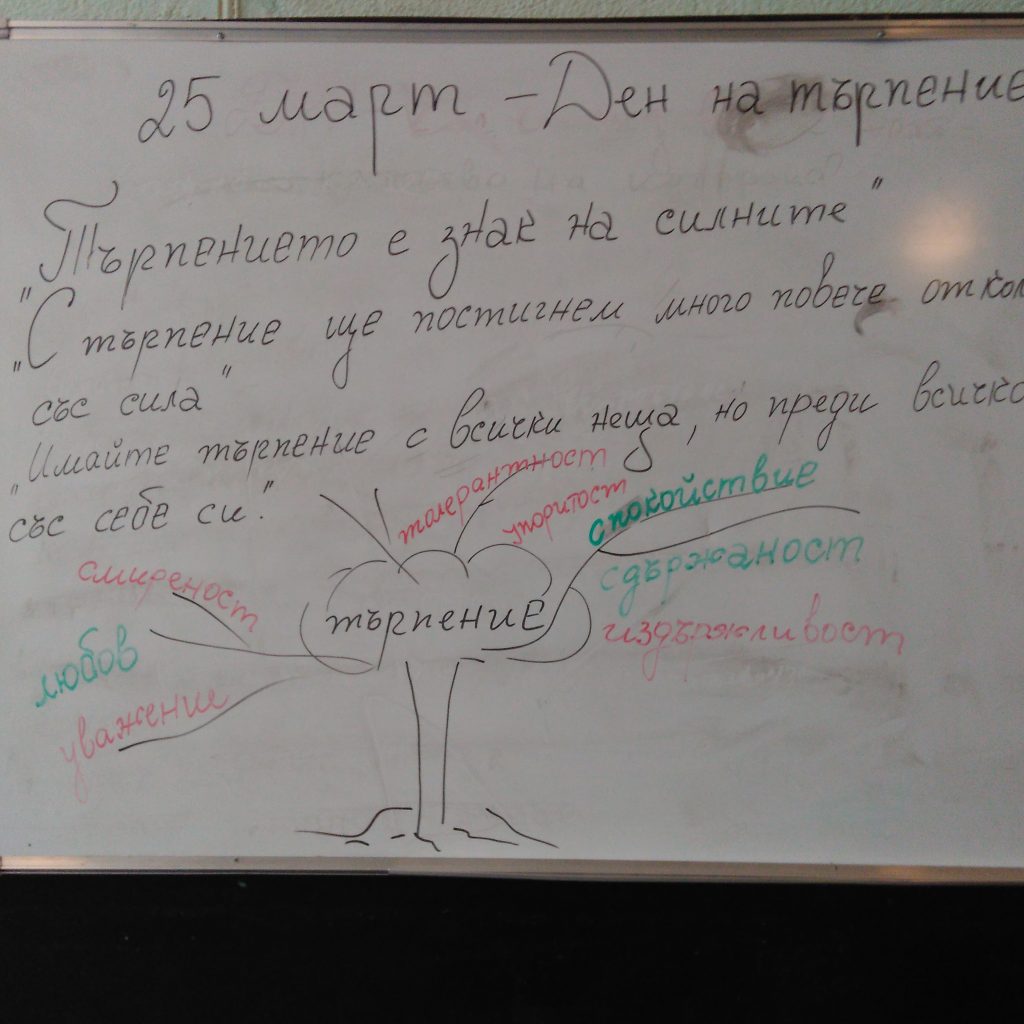 25 март – Ден на търпение
"Търпението е знак на силните"
"С търпение ще постигнем много повече откол
със сила"
"Имайте търпение с всички неща, но преди всичко
със себе си."
толерантност
упоритост
спокойствие
сдържаност
издържливост
смиреност
любов
уважение
търпение